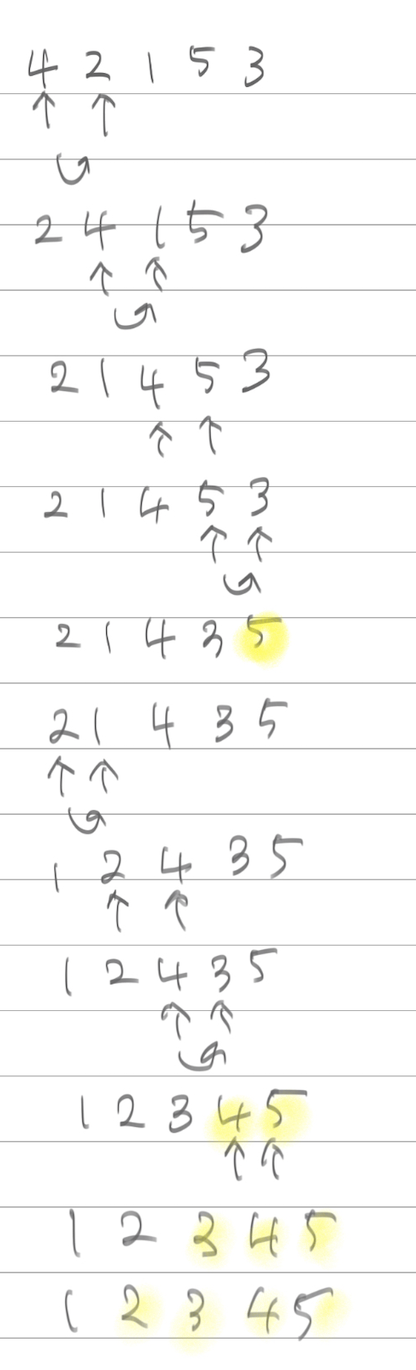 4 2 1 5 3
2 4 1 5 3
2 1 4 5 3
2 1 4 5 3
2 1 4 3 5
2 1 4 3 5
1 2 4 3 5
1 2 4 3 5
1 2 3 4 5
1 2 3 4 5
1 2 3 4 5